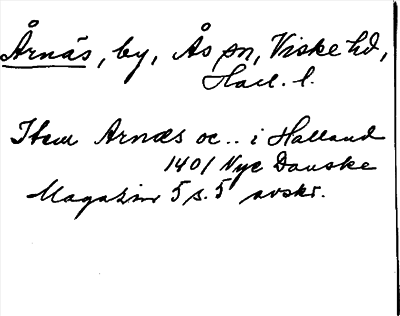 Årnäs, by, Ås sn, Viske hd,
Hall. l.
Item Arnæs oc.. i Halland
1401 Nye Danske
Magazin 5 s. 5 avskr.